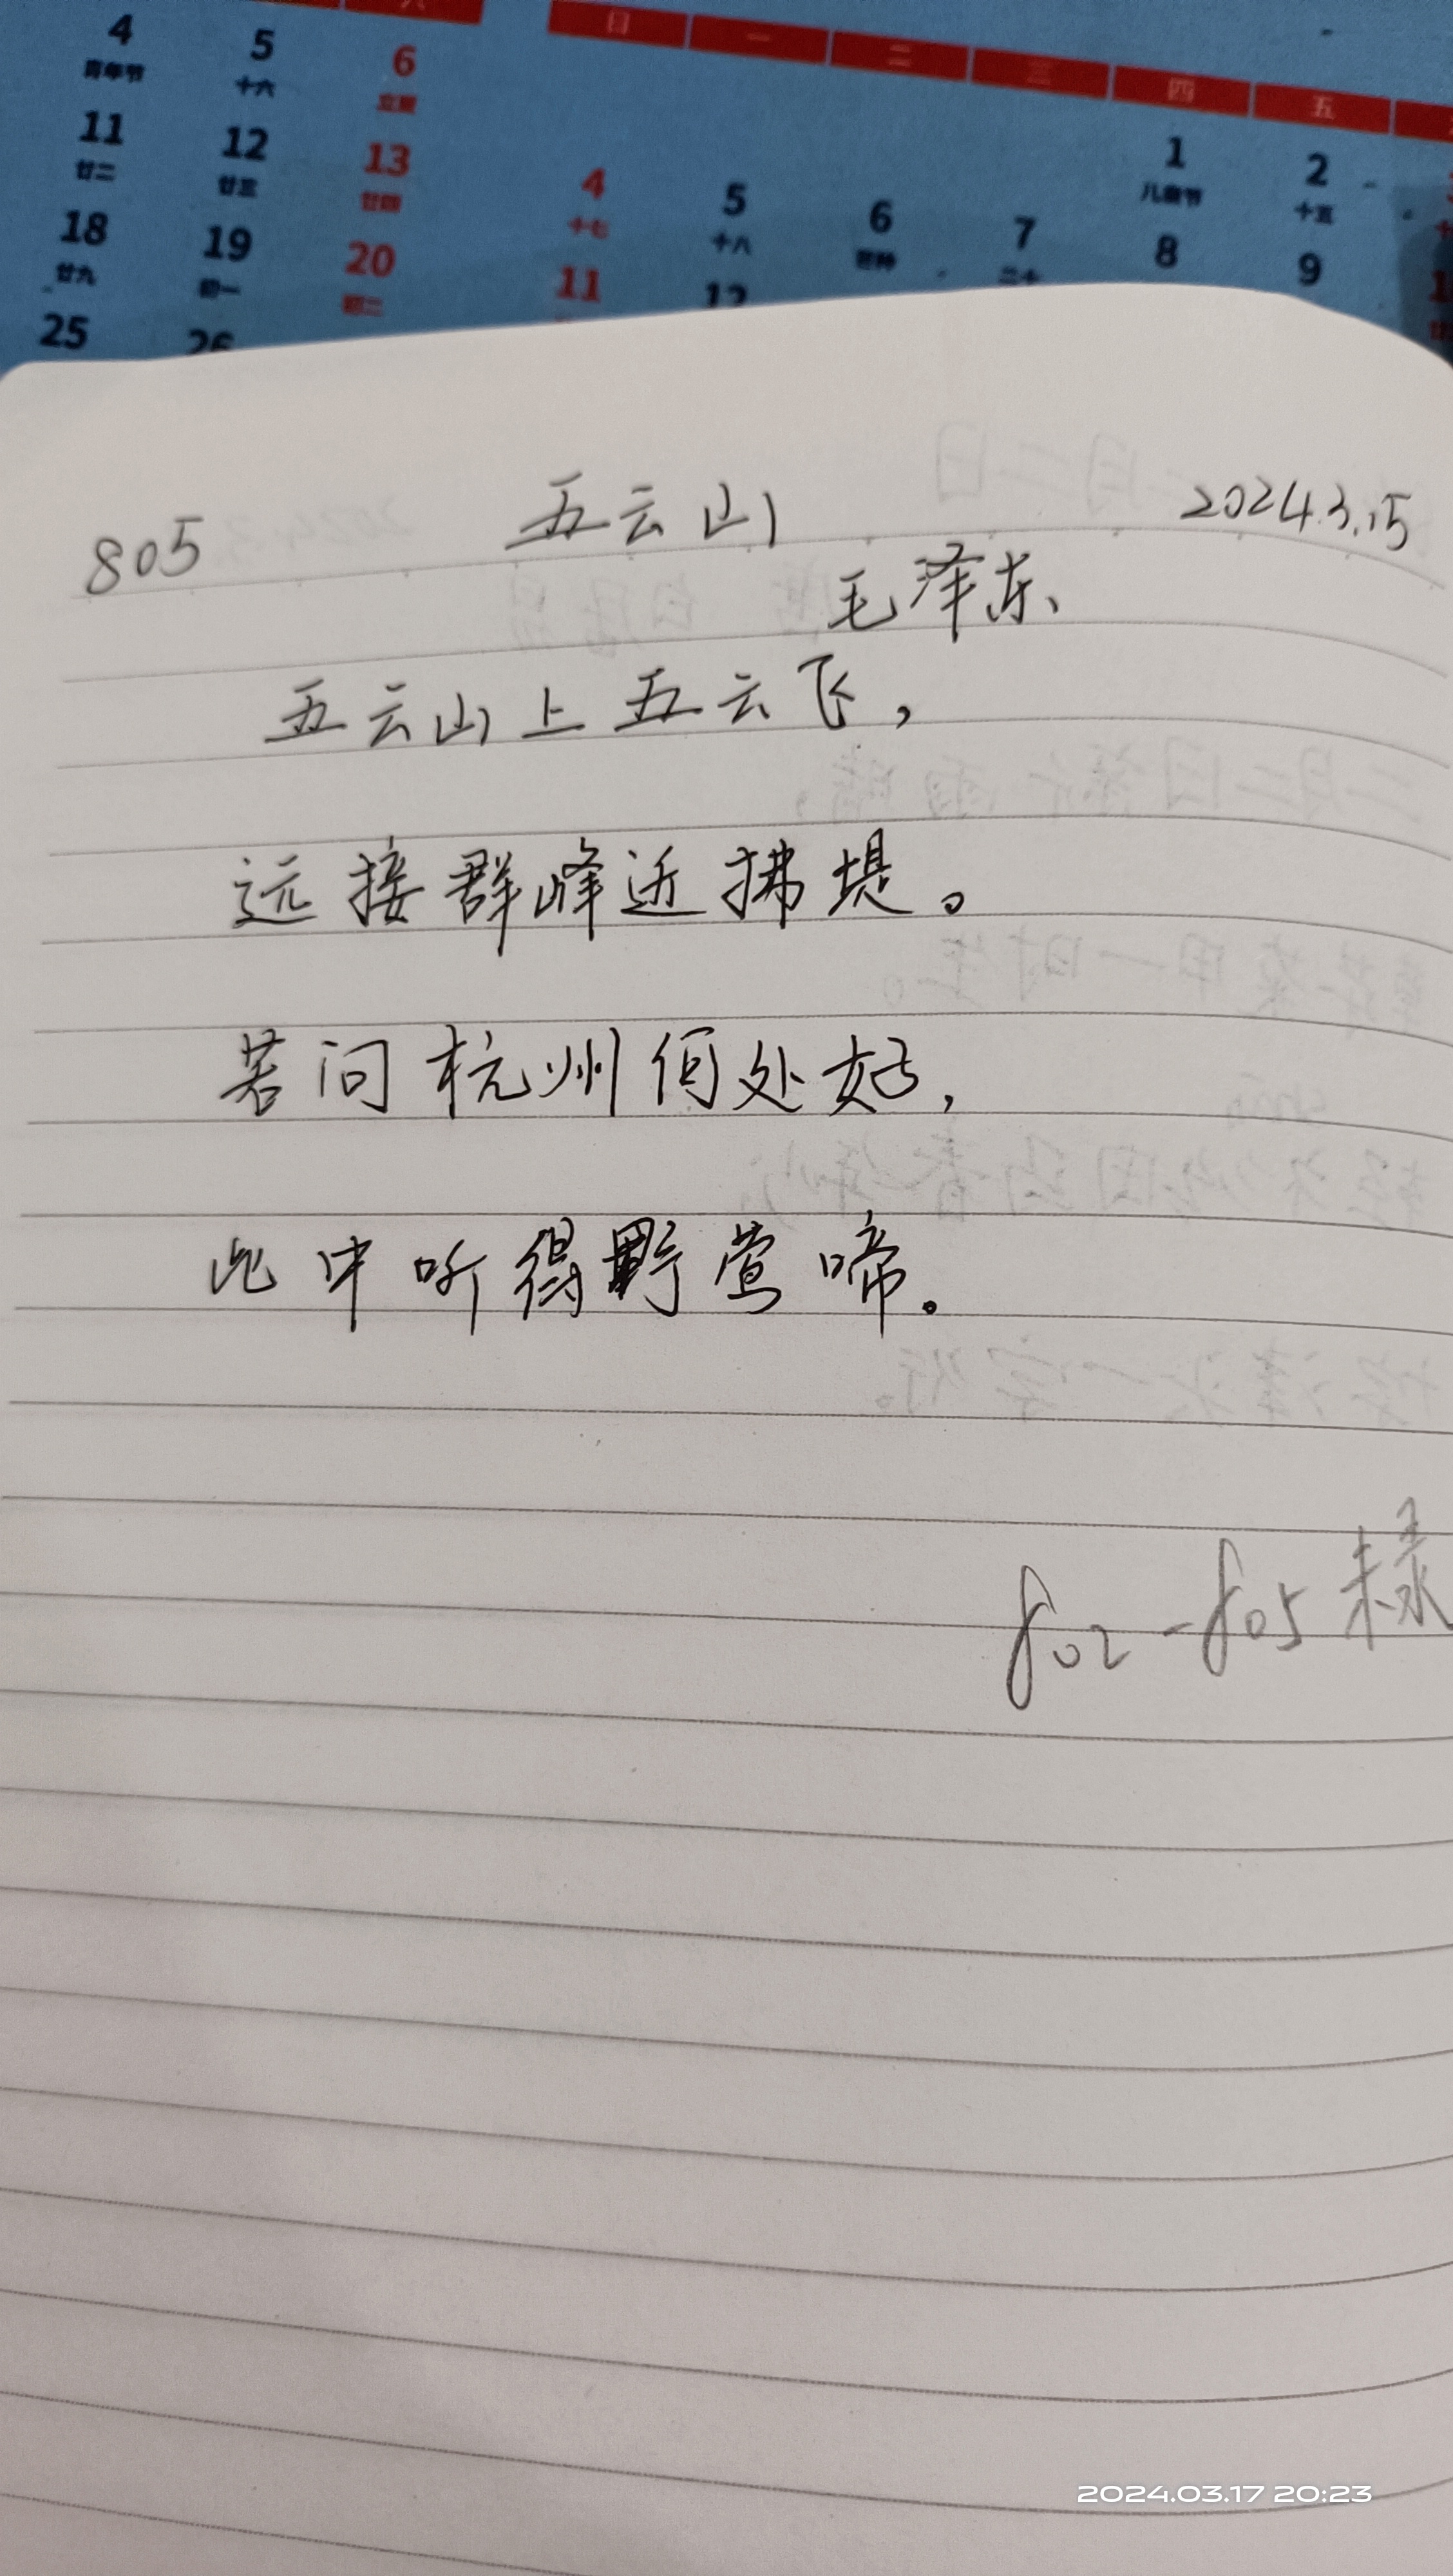 4 5 6 日 一 二 三 四 五
青年节 十六 立夏
11 12 13 1 2
廿二 廿三 廿四 4 5 6 7 儿童节 十五
18 19 20 十七 十八 芒种 二十 8 9
廿九 初一 初二 11 12
25 26
805 五云山 2024.3.15
毛泽东、
五云山上五云飞，
远接群峰近拂堤。
若问杭州何处好，
此中听得野莺啼。
802-805
2024.03.17 20:23